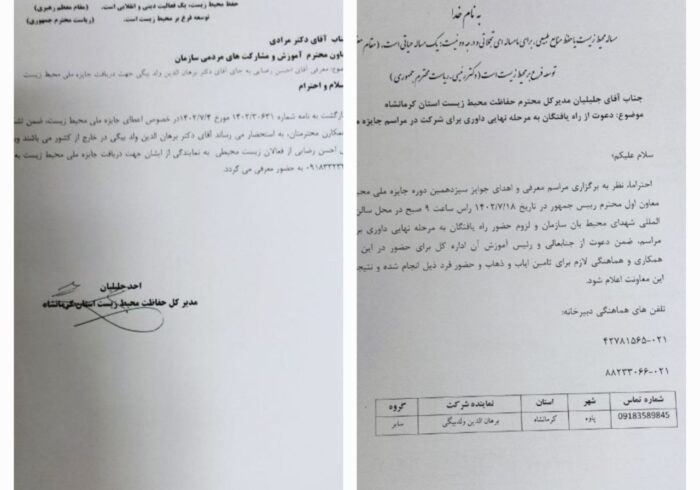 حفظ محیط زیست، یک فعالیت دینی و انقلابی است. (مقام معظم رهبری)
توسعه فرع بر محیط زیست است. (ریاست محترم جمهوری)
جناب آقای دکتر مرادی
معاون محترم آموزش و مشارکت های مردمی سازمان
موضوع: معرفی آقای احسن رضایی به جای آقای دکتر برهان الدین ولد بیگی جهت دریافت جایزه ملی محیط زیست
سلام و احترام
بازگشت به نامه شماره ۱۴۰۲/۳۰۶۳۱ مورخ ۱۴۰۲/۷/۴ در خصوص اعطای جایزه ملی محیط زیست، ضمن
همکاران محترمتان، به استحضار می رساند آقای دکتر برهان الدین ولد بیگی در خارج از کشور می باشند
احسن رضایی از فعالان زیست محیطی به نمایندگی از ایشان جهت دریافت جایزه ملی محیط زیست به
به حضور معرفی می گردد.
احد جلیلیان
مدیر کل حفاظت محیط زیست استان کرمانشاه
به نام خدا
مساله محیط زیست یا حفظ منابع طبیعی، برای ما مساله ای تجملاتی و درجه دو نیست؛ یک مساله حیاتی است. (مقام
توسعه فرع بر محیط زیست است (دکتر رئیسی، ریاست محترم جمهوری)
جناب آقای جلیلیان مدیرکل محترم حفاظت محیط زیست استان کرمانشاه
موضوع: دعوت از راه یافتگان به مرحله نهایی داوری برای شرکت در مراسم جایزه
سلام علیکم؛
احتراما، نظر به برگزاری مراسم معرفی و اهدای جوایز سیزدهمین دوره جایزه ملی
معاون اول محترم رییس جمهور در تاریخ ۱۴۰۲/۷/۱۸ راس ساعت ۹ صبح در محل سالن
المللی شهدای محیط بان سازمان و لزوم حضور راه یافتگان به مرحله نهایی داوری
مراسم، ضمن دعوت از جنابعالی و رئیس آموزش آن اداره کل برای حضور در این
همکاری و هماهنگی لازم برای تامین ایاب و ذهاب و حضور فرد ذیل انجام شده و
این معاونت اعلام شود.
تلفن های هماهنگی دبیرخانه:
۴۲۷۸۱۵۶۵-۰۲۱
۸۸۲۳۳۰۶۶-۰۲۱
شماره تماس شهر استان نماینده شرکت گروه
09183589845 پاوه کرمانشاه برهان الدین ولدبیگی سایر